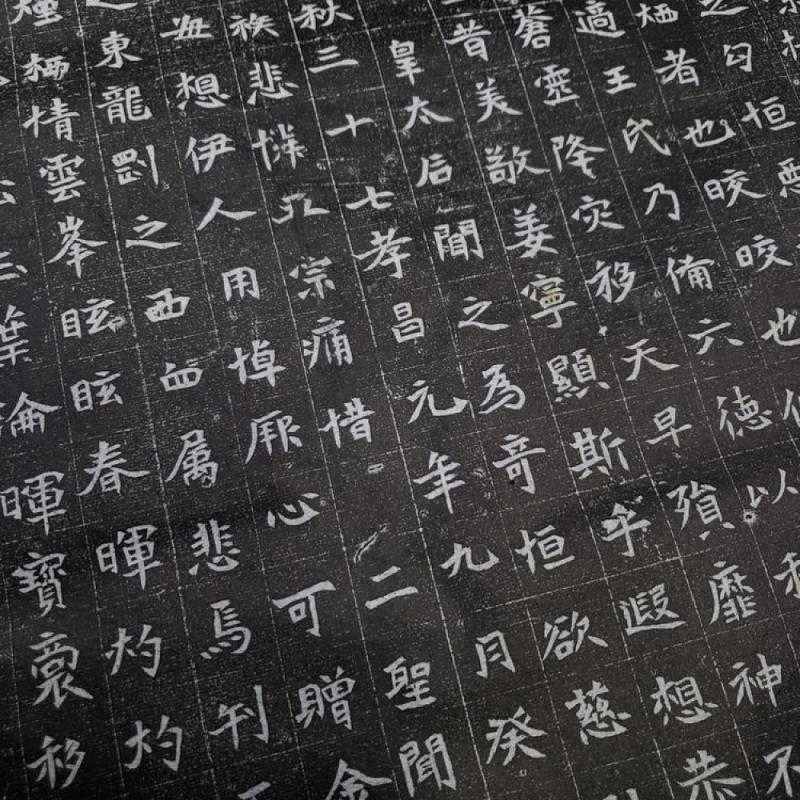 勾恒
栖者也皎皎也
適王氏乃備六德以
蒼靈降灾移天早殞靡神不
昔美敬姜寧顯斯乎遐想恭
皇太后聞之為奇恒欲慈
秋三十七孝昌元年九月癸
族悲慄九宗痛惜 二聖聞
想伊人用悼厥心可贈金
之東龍劉之西血属悲焉刊
栖情雲峯眩眩春暉灼灼
葉淪暉寶裛移